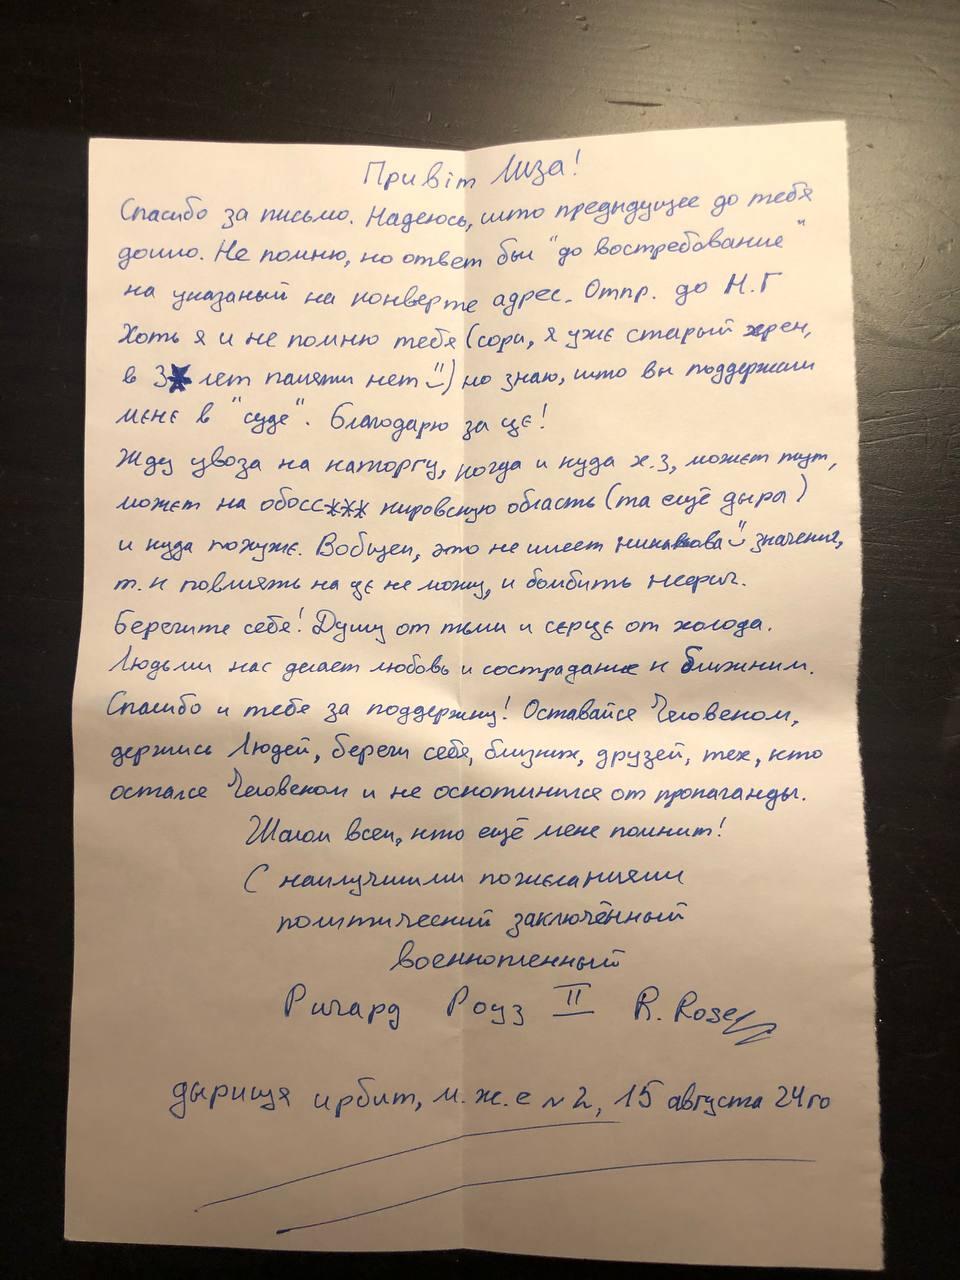 Привіт Лиза!
Спасибо за письмо. Надеюсь, што предыдущее до тебя
дошло. Не помню, но ответ был "до востребование"
на указаный на конверте адрес. Отпр. до Н.Г
Хоть я и не помню тебя (сори, я ужє старый хрен,
в 3* лет памяти нет :)) но знаю, што вы поддержали
мене в "суде". Благодарю за цє!
Жду увоза на каторгу, когда и куда х.з, может тут,
может на обосс*** кировскую область (та ещё дыра)
и куда похуже. Вобщем, это не имеет никакова :) значения,
т.к повлиять на цє не можу, и бомбить нефиг.
Берегите себя! Душу от тьмы и сєрцє от холода.
Людьми нас делает любовь и сострадание к ближним.
Спасибо и тебе за поддержку! Оставайсе Человеком,
держись Людей, береги себя, близких, друзей, тех, кто
осталсе Человеком и не оскотинилсе от пропаганды.
Шалом всем, кто ещё мене помнит!
С наилучшими пожеланиями
политический заключённый
военнопленный
Ричард Роуз II R. Rose
дырищя ирбит, м.ж.е №2, 15 августа 24го